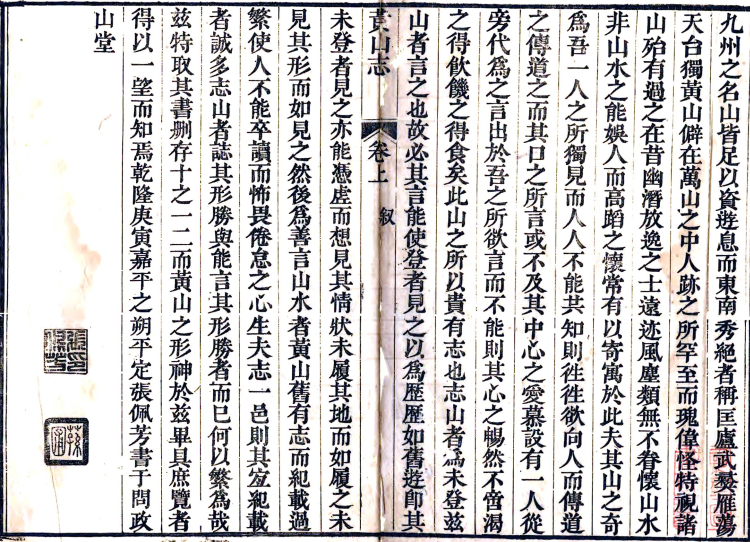 九州之名山皆足以資遊息而東南秀絕者稱匡廬武夔雁蕩
天台獨黃山僻在萬山之中人跡之所罕至而瑰偉怪特視諸
山殆有過之在昔幽潛放逸之士遠迹風塵類無不眷懷山水
非山水之能娛人而高蹈之懷常有以寄寓於此夫其山之奇
爲吾一人之所獨見而人人不能共知則徃徃欲向人而傳道
之傳道之而其口之所言或不及其中心之愛慕設有一人從
旁代爲之言出於吾之所欲言而不能則其心之暢然不啻渴
之得飲饑之得食矣此山之所以貴有志也志山者爲未登茲
山者言之也故必其言能使登者見之以爲歷歷如舊遊即其
黃山志 卷上 叙
未登者見之亦能憑虛而想見其情狀未履其地而如履之未
見其形而如見之然後爲善言山水者黃山舊有志而紀載過
繁使人不能卒讀而怖畏倦怠之心生夫志一邑則其宜紀載
者誠多志山者誌其形勝與能言其形勝者而已何以繁爲哉
茲特取其書刪存十之一二而黃山之形神於茲畢具庶覽者
得以一望而知焉乾隆庚寅嘉平之朔平定張佩芳書于問政
山堂